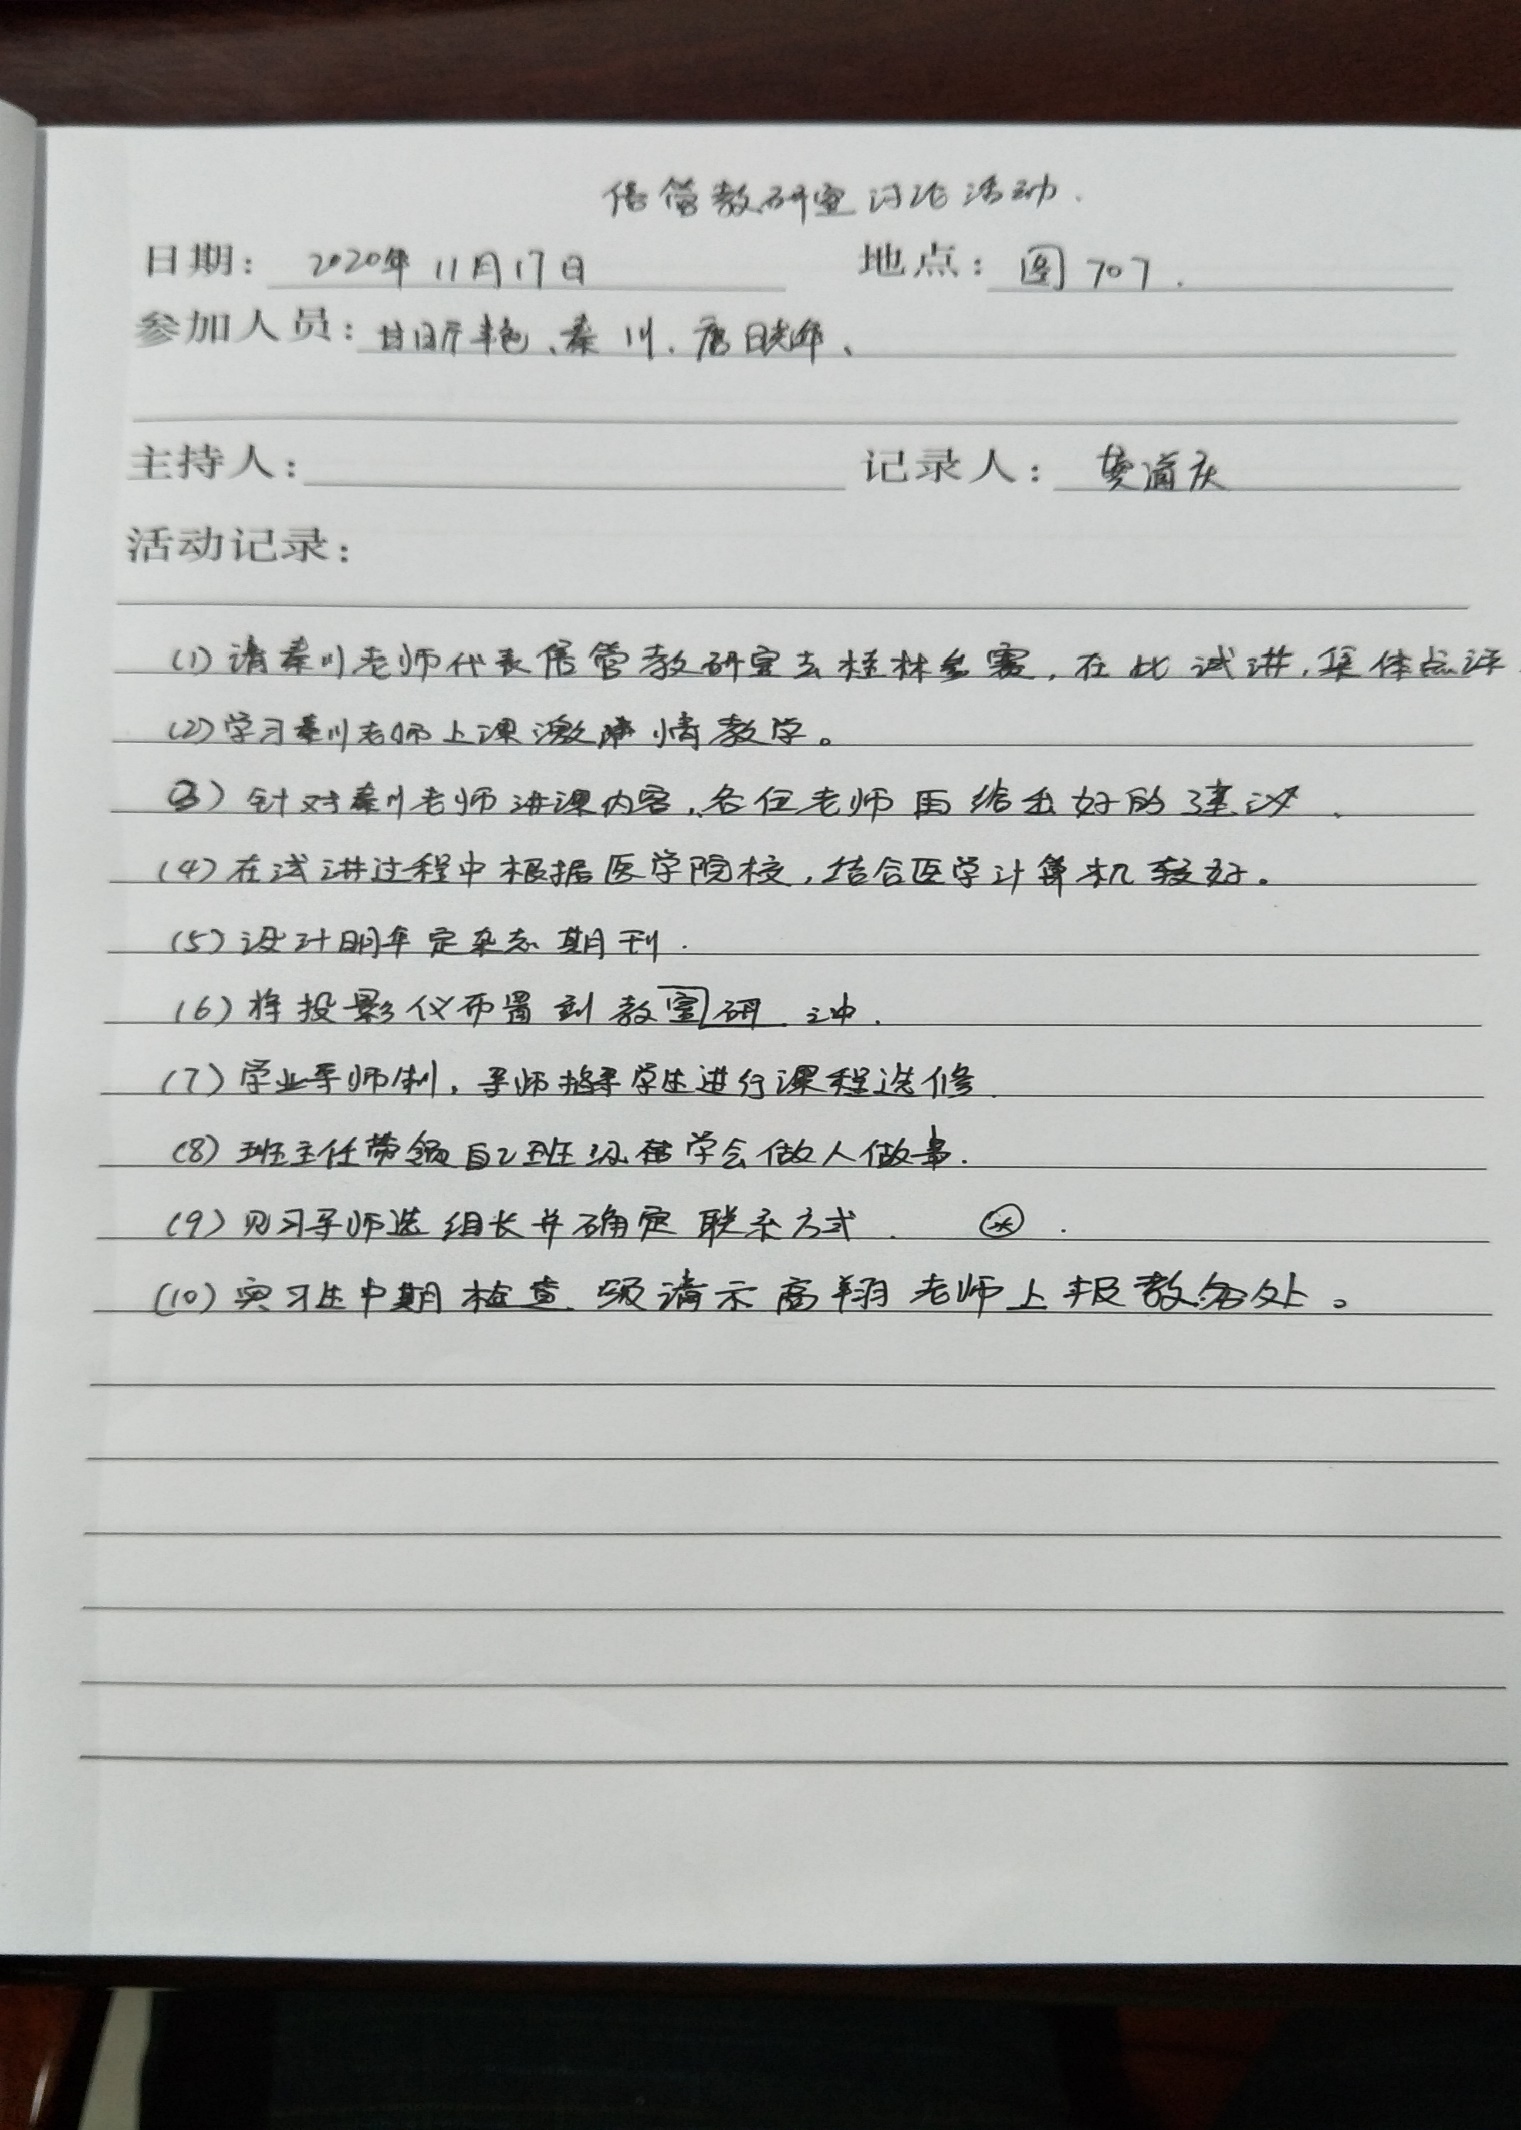 信管教研室讨论活动.
日期： 2020年11月17日 地点： 图707.
参加人员： 甘昕艳、秦川、唐晓年、
主持人： 记录人： 樊浦庆
活动记录：
(1)请秦川老师代表信管教研室去桂林参赛,在此试讲,集体点评
(2)学习秦川老师上课激情教学。
(3)针对秦川老师讲课内容,各位老师 给出好的建议.
(4)在试讲过程中根据医学院校,结合医学计算机较好。
(5)设计明年定杂志期刊.
(6)将投影仪布置到教室研 .
(7)学业导师制,导师指导学生进行课程选修.
(8)班主任带领自己班级 学会做人做事.
(9)见习导师选组长并确定联系方式.
(10)实习生中期检查.须请示高翔老师上报教务处。